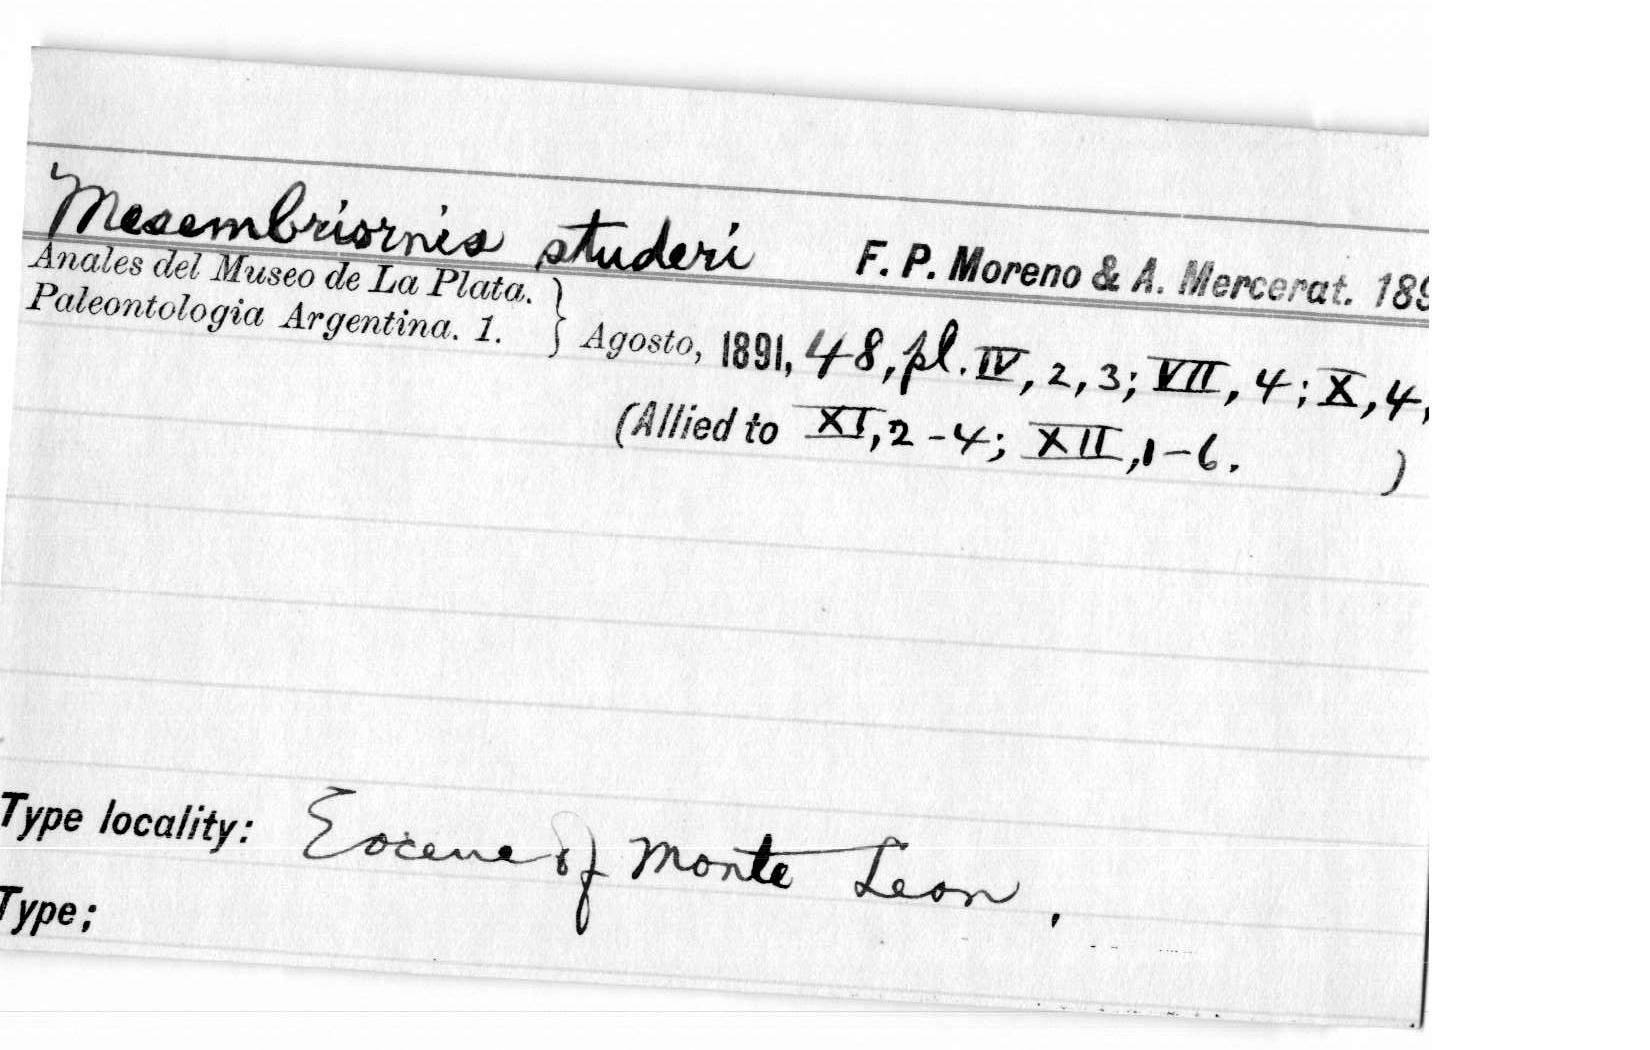 Mesembriornis studeri F. P. Moreno & A. Mercerat. 189
Anales del Museo de La Plata.
Paleontologia Argentina. 1. } Agosto, 1891, 48, pl. IV, 2, 3; VII, 4; X, 4,
(Allied to XI, 2-4; XII, 1-6. )
Type locality: Eocene of Monte Leon.
Type;